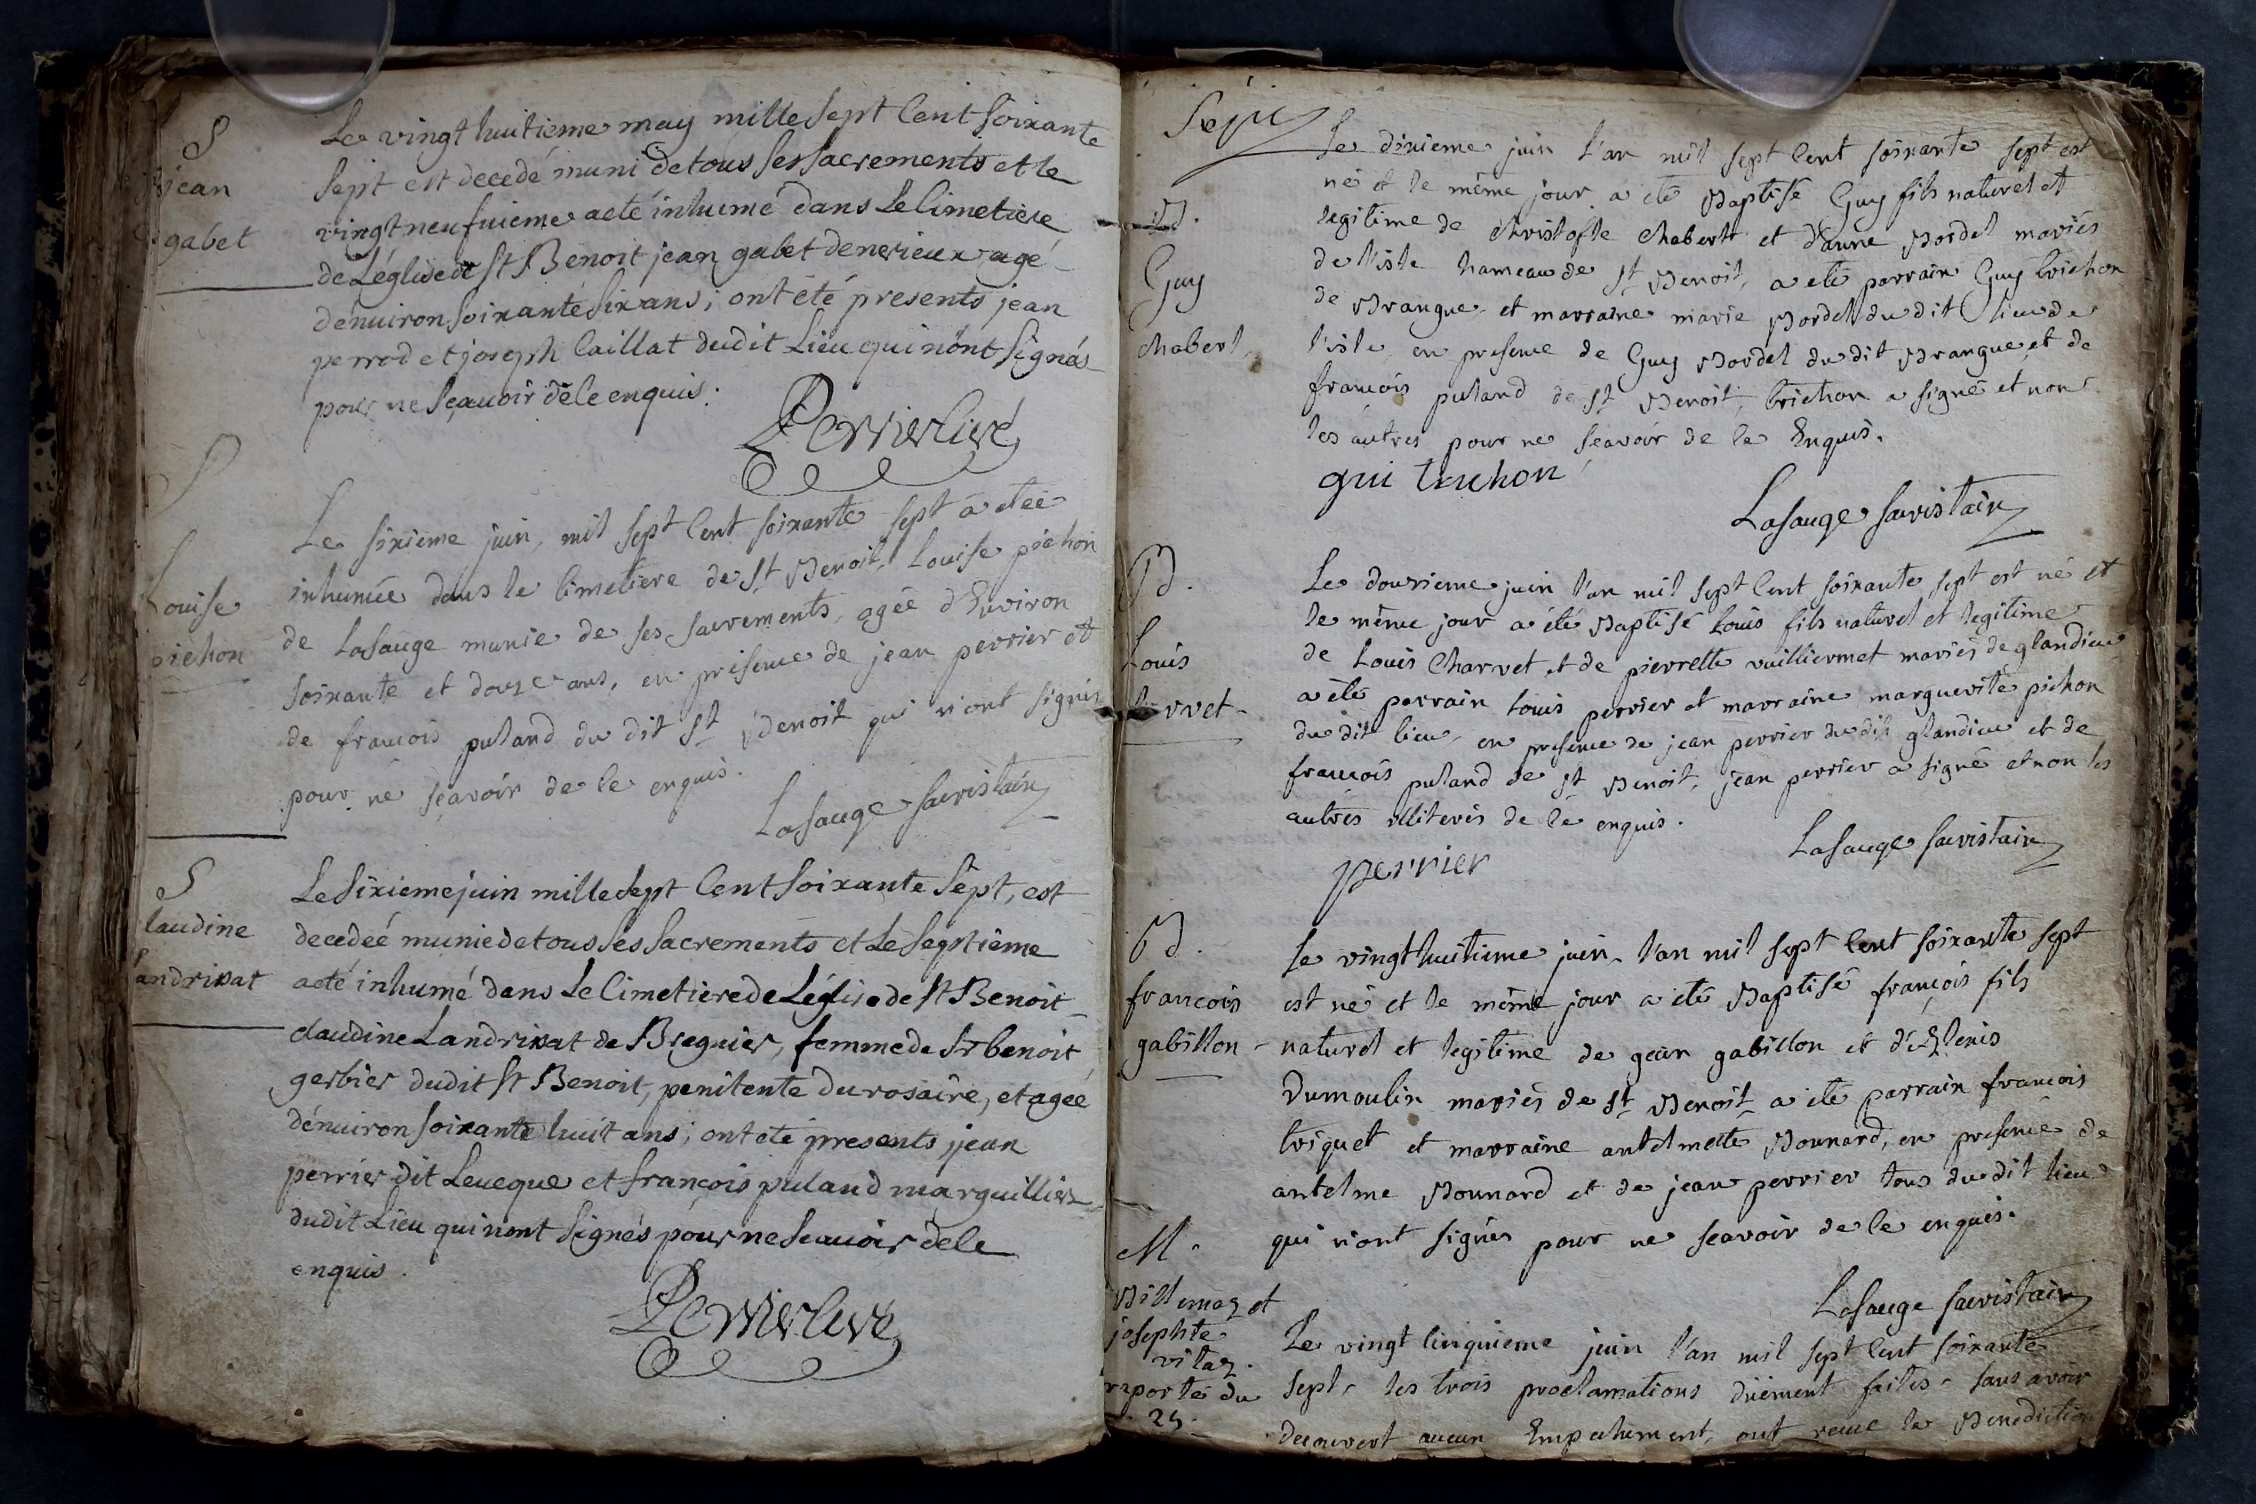 S
jean
gabet
Le vingt huitieme may mille sept Cent soixante
sept est decedé muni de tous ses sacrements et le
vingt neufuieme a eté inhumé dans Le Cimetiere
de L'église de St Benoit jean gabet de nerieux agé
dénuiron soixante six ans; ont été presents jean
perrod et joseph Caillat dudit Lieu qui n'ont signés
pour ne sçauoir dele enquis.
Perrier curé
S
Louise
pichon
Le sixieme juin, mil sept Cent soixante sept a etée
inhumée dans le Cimetiere de St Benoit, Louise pichon
de Lasauge munie de ses sacrements, agée d'Environ
soixante et douze ans, en présence de jean perrier et
de francois puland du dit St Benoit qui n'ont signés
pour ne sçavoir de le enquis.
Lasauge sacristain
S
laudine
andrivat
Le sixieme juin mille sept Cent soixante sept, est
decedeé munie de tous ses sacrements et Le septieme
a eté inhumé dans Le Cimetiere de L'église de St Benoit
claudine Landrivat de Bregnier, femme de Sr benoit
gerbier dudit St Benoit, penitente du rosaire, et ageé
dénuiron soixante huit ans; ont eté presents jean
perrier dit Leueque et françois puland marguillier
dudit Lieu qui n'ont signés pour ne scauoir dele
enquis.
Perrier curé
Sept
Bd.
Guy
chabert
Le dixieme juin l'an mil sept Cent soixante sept est
né et le même jour a eté Baptisé Guy fils naturel et
legitime de christofle chabert et d'anne Bordel mariés
de l'isle hameau de St Benoit, a eté parrain Guy trichon
de Brangue et marraine marie Bordel du dit lieu de
l'isle, en presence de Guy Bordel du dit Brangue et de
francois puland de St Benoit, trichon a signé et non
les autres pour ne sçavoir de le Enquis.
gui truchon
Lasauge sacristain
Bd.
Louis
rvet
Le douzieme juin l'an mil sept Cent soixante sept est né et
le même jour a été Baptisé Louis fils naturel et legitime
de Louis Charvet et de pierrette vuilliermet mariés de glandieu
a été parrain Louis perrier et marraine marguerite pichon
du dit lieu, en presence de jean perrier du dit glandieu et de
francois puland de St Benoit, jean perrier a signé et non les
autres illiterés de le enquis.
perrier
Lasauge sacristain
Bd.
francois
gabillon
Le vingt huitieme juin, l'an mil sept Cent soixante sept
est né et le même jour a eté Baptisé françois fils
naturel et legitime de gean gabillon et
Dumoulin mariés de St Benoit a eté parrain francois
triquet et marraine antelmette Bonnard, en presence de
antelme Bonnard et de jean perrier tous du dit lieu
qui n'ont signés pour ne scavoir de le enquis.
Lasauge sacristain
M.
Billemaz et
josephte
vitaz.
rapporté du
25.
Le vingt Cinquieme juin l'an mil sept Cent soixante
sept, les trois proclamations düement faites, sans avoir
decouvert aucun Empechement, ont receu la Benediction